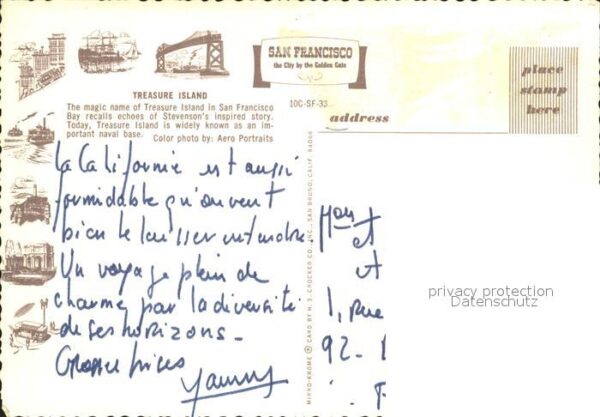 SAN FRANCISCO
the City by the Golden Gate
place
stamp
here
TREASURE ISLAND
The magic name of Treasure Island in San Francisco
Bay recalls echoes of Stevenson's inspired story.
Today, Treasure Island is widely known as an im-
portant naval base. Color photo by: Aero Portraits
10C-SF-33
address
La Californie est aussi
formidable qu'on veut
bien le laisser entendre.
Un voyage plein de
charme par la diversité
de ses horizons -
Grosses bises
MIRRO-KROME ® CARD BY H. S. CROCKER CO., INC., SAN BRUNO, CALIF. 94066
et
et
1, Rue
92-
privacy protection
Datenschutz